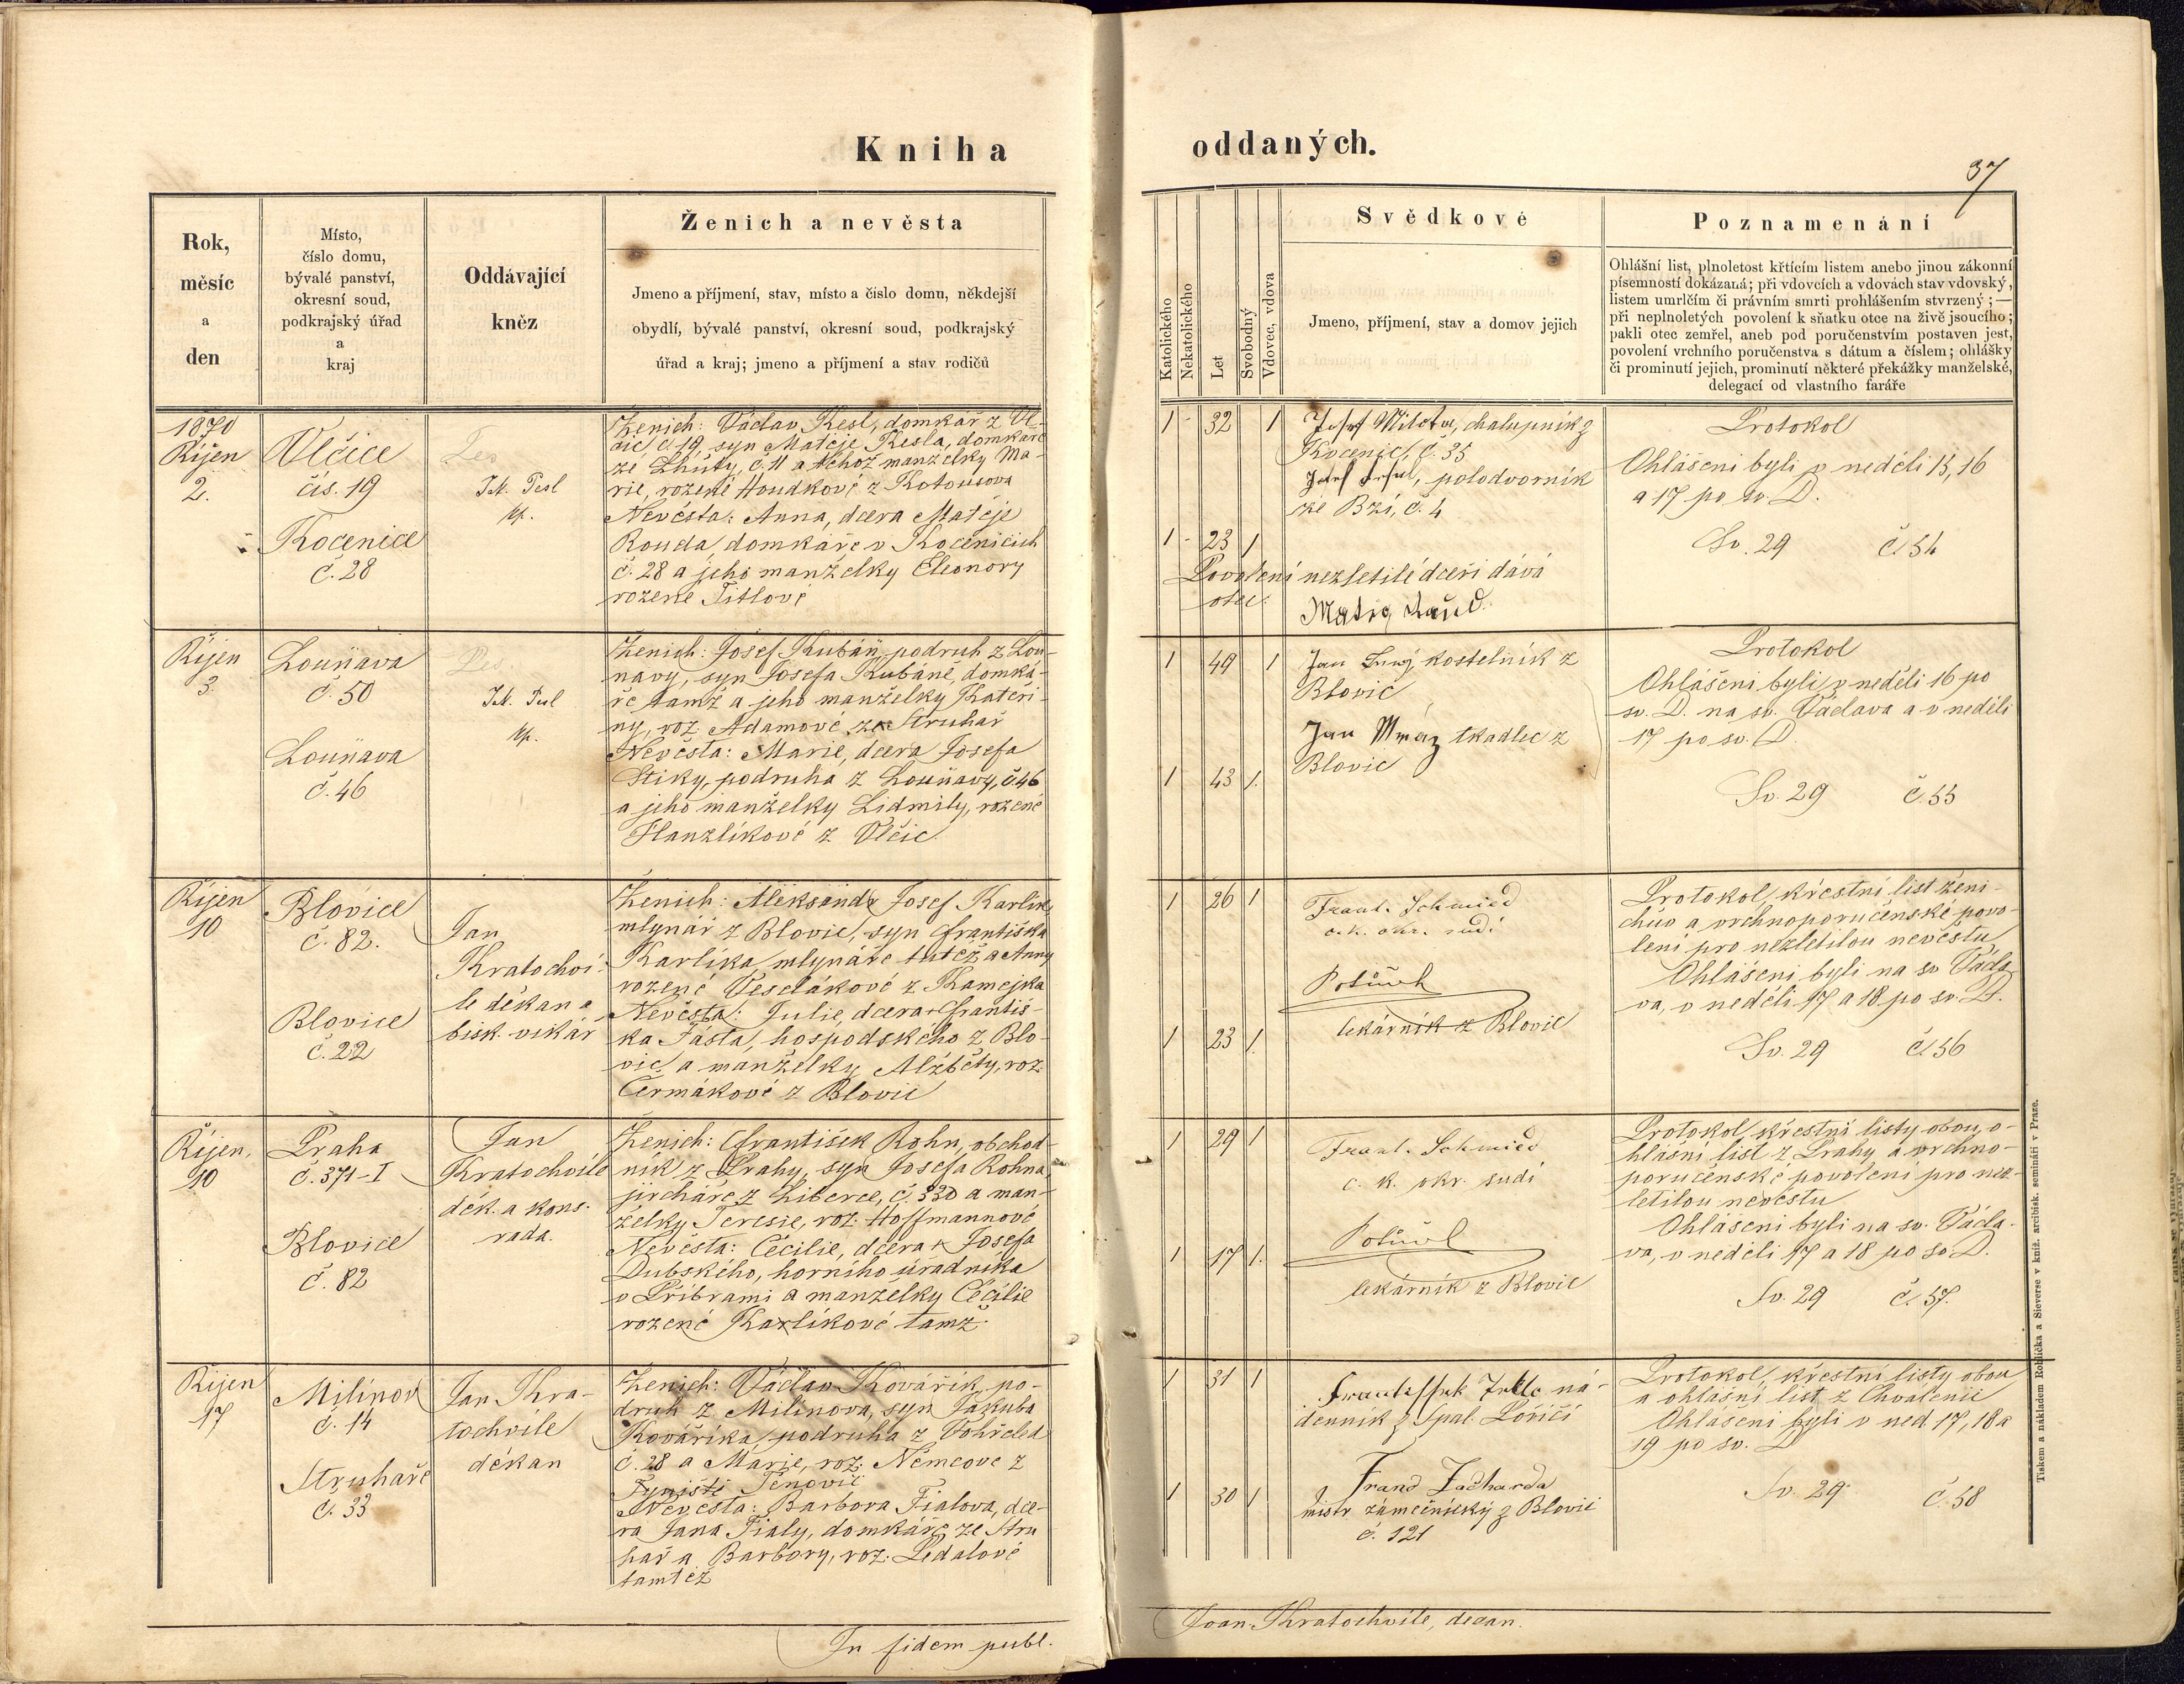 Kniha
oddaných.
37
Rok,
měsíc
a
den
Místo,
číslo domu,
bývalé panství,
okresní soud,
podkrajský úřad
a
kraj
Oddávající
kněz
Ženich a nevěsta
Jmeno a příjmení, stav, místo a číslo domu, někdejší
obydlí, bývalé panství, okresní soud, podkrajský
úřad a kraj; jmeno a příjmení a stav rodičů
Katolického
Nekatolického
Let
Svobodný
Vdovec, vdova
Svědkové
Jmeno, příjmení, stav a domov jejich
Poznamenání
Ohlášní list, plnoletost křtícím listem anebo jinou zákonní
písemností dokázaná; při vdovcích a vdovách stav vdovský,
listem umrlčím či právním smrti prohlášením stvrzený; —
při neplnoletých povolení k sňatku otce na živě jsoucího;
pakli otec zemřel, aneb pod poručenstvím postaven jest,
povolení vrchního poručenstva s dátum a číslem; ohlášky
či prominutí jejich, prominutí některé překážky manželské,
delegací od vlastního faráře
1870
Říjen
2.
Vlčice
čís. 19
Kocenice
č. 28
Ženich: Václav Resl, domkář z Vl-
čic, č. 19, syn Matěje Resla, domkáře
ze Lhůty, č. 11 a téhož manželky Ma-
rie, rozené Houdkové z Kotousova
Nevěsta: Anna, dcera Matěje
Rouda, domkáře v Kocenicích
č. 28 a jeho manželky Eleonory
rozené Titlové
1 - 32 1
1 - 23 1
Josef chalupník z
Kocenic, č. 35
Josef polodvorník
ze Bzí, č. 4
Povolení nezletilé dceři dává
otec:
Protokol
Ohlášeni byli v neděli 15, 16
a 17 po sv. D.
Sv. 29 č. 54
Říjen
3.
Louňava
č. 50
Louňava
č. 46
Ženich: Josef Kubáň, podruh z Lou-
navy, syn Josefa Kubáně, domká-
ře tamž a jeho manželky Kateři-
ny, roz. Adamové ze Struhař
Nevěsta: Marie, dcera Josefa
Štiky, podruha z Louňavy, č. 46
a jeho manželky Lidmily, rozené
Hanzlíkové z Vlčic
1 49 1
1 43 1.
Jan kostelník z
Blovic
Jan Mráz tkadlec z
Blovic
Protokol
Ohlášeni byli v neděli 16 po
sv. D. na sv. Václava a v neděli
17 po sv. D.
Sv. 29 č. 55
Říjen
10
Blovice
č. 82.
Blovice
č. 22
Jan
Kratochví-
le děkan a
bisk. vikář
Ženich: Aleksandr Josef Karlík
mlynář z Blovic, syn Františka
Karlíka, mlynáře tutéž a Anny
rozené Veselákové z Kamejka
Nevěsta: Julie, dcera + Františ-
ka Fásta, hospodského z Blo-
vic a manželky Alžběty, roz.
Čermákové z Blovic
1 26 1
1 23 1.
Frant. Schmied
c. k. okr. sudí
lekárník z Blovic
Protokol, křestní list ženi-
chův a vrchnoporučenské povo-
lení pro nezletilou nevěstu
Ohlášeni byli na sv. Václa-
va, v neděli 17 a 18 po sv. D.
Sv. 29 č. 56
Říjen,
10
Praha
č. 371-I
Blovice
č. 82
Jan
Kratochvíle
děk. a kons.
rada.
Ženich: František Rohn, obchod-
ník z Prahy, syn Josefa Rohna,
jircháře z Liberce, č. 330 a man-
želky Teresie, roz. Hoffmannové
Nevěsta: Cecilie, dcera + Josefa
Dubského, horního úředníka
v Příbrami a manželky Cecilie
rozené Karlíkové tamž.
1 29 1
1 17 1.
Frant. Schmied
c. k. okr. sudí
lekárník z Blovic
Protokol, křestní listy obou, o-
hlášní list z Prahy a vrchno-
poručenské povolení pro nez-
letilou nevěstu
Ohlášeni byli na sv. Václa-
va, v neděli 17 a 18 po sv. D.
Sv. 29 č. 57.
Říjen
17
Milínov
č. 14
Struhaře
č. 33
Jan Kra-
tochvíle
děkan
Ženich: Václav Kovářík, po-
druh z Milínova, syn Jakuba
Kováříka, podruha z Vohřeled
č. 28 a Marie, roz. Němcové z
Týniště
Nevěsta: Barbora Fialova, dce-
ra Jana Fialy, domkáře ze Stru
hař a Barbory, roz. Ledalové
tamtéž
1 31 1
1 30 1
ná-
denník z Spal. Poříčí
Frand Zacharda
mistr zámečnický z Blovic
č. 121
Protokol, křestní listy obou
a ohlášní list z Chválenic
Ohlášeni byli v ned. 17, 18 a
19 po sv. D
Sv. 29. č. 58
In fidem publ.
Joan. Kratochvile, decan.
Tiskem a nákladem Rohlíčka a Sieverse v kníž. arcibisk. semináři v Praze.